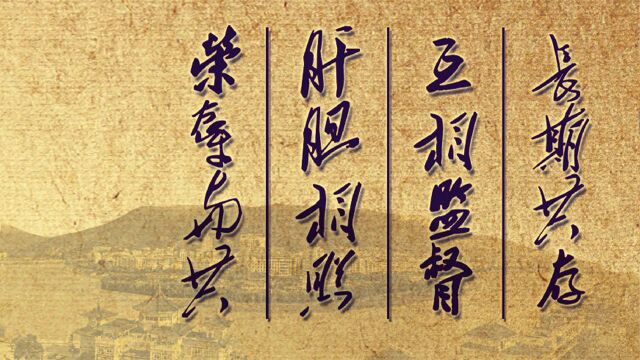 長期共存
互相监督
肝胆相照
榮辱与共